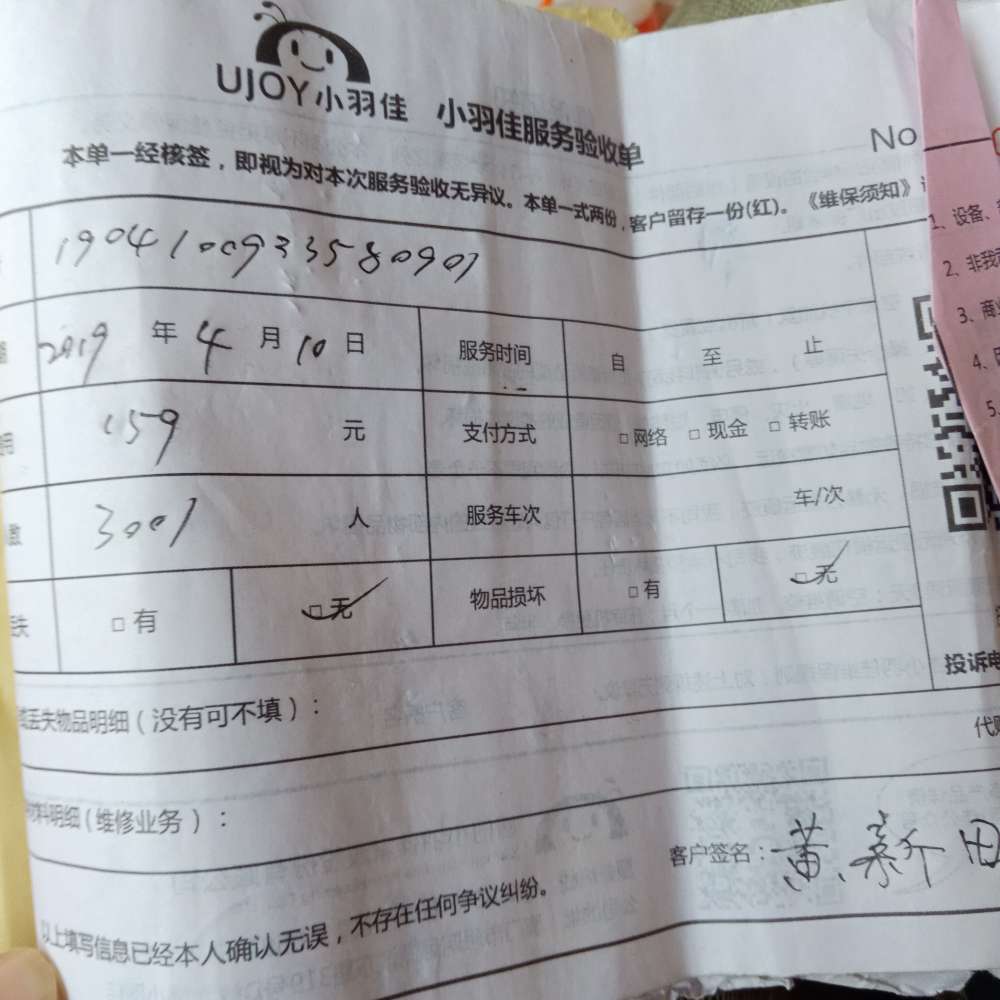 UJOY小羽佳 小羽佳服务验收单
No
本单一经核签，即视为对本次服务验收无异议。本单一式两份，客户留存一份(红)。《维保须知》
1904100933580901
2019 年 4 月 10 日 服务时间 自 至 止
159 元 支付方式 □网络 □现金 □转账
3001 人 服务车次 车/次
失 □有 □无 物品损坏 □有 □无
丢失物品明细（没有可不填）：
材料明细（维修业务）：
以上填写信息已经本人确认无误，不存在任何争议纠纷。
客户签名：黄 新田
投诉电
代
1、设备、
2、非我
3、商
4、
5、